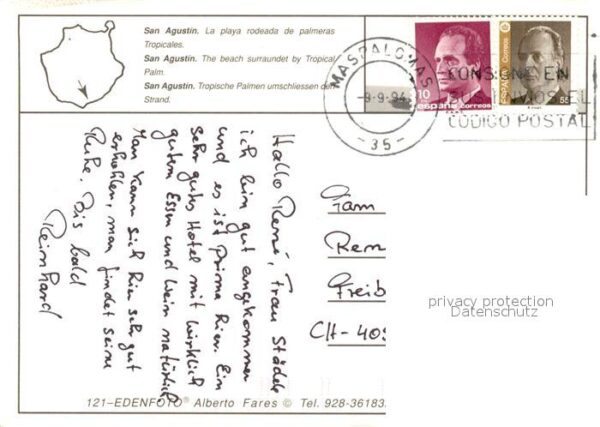 San Agustín. La playa rodeada de palmeras
Tropicales.
San Agustin. The beach surroundet by Tropical
Palm.
San Agustin. Tropische Palmen umschliessen den
Strand.
MASPALOMAS
-9-9.94
-35-
CONSIGNE EN
CODIGO POSTAL
10
españa
correos
ESPAÑA
Correos
55
Hallo René, Frau Städeli
ich bin gut angekommen
und es ist prima hier. Ein
sehr gutes Hotel mit wirklich
gutem Essen und Wein natürlich
Man kann sich hier sehr gut
erholen, man findet seine
Ruhe. Bis bald
Reinhard
Fam
Ren
Freib
CH-405
privacy protection
Datenschutz
121-EDENFOTO® Alberto Fares © Tel. 928-36183